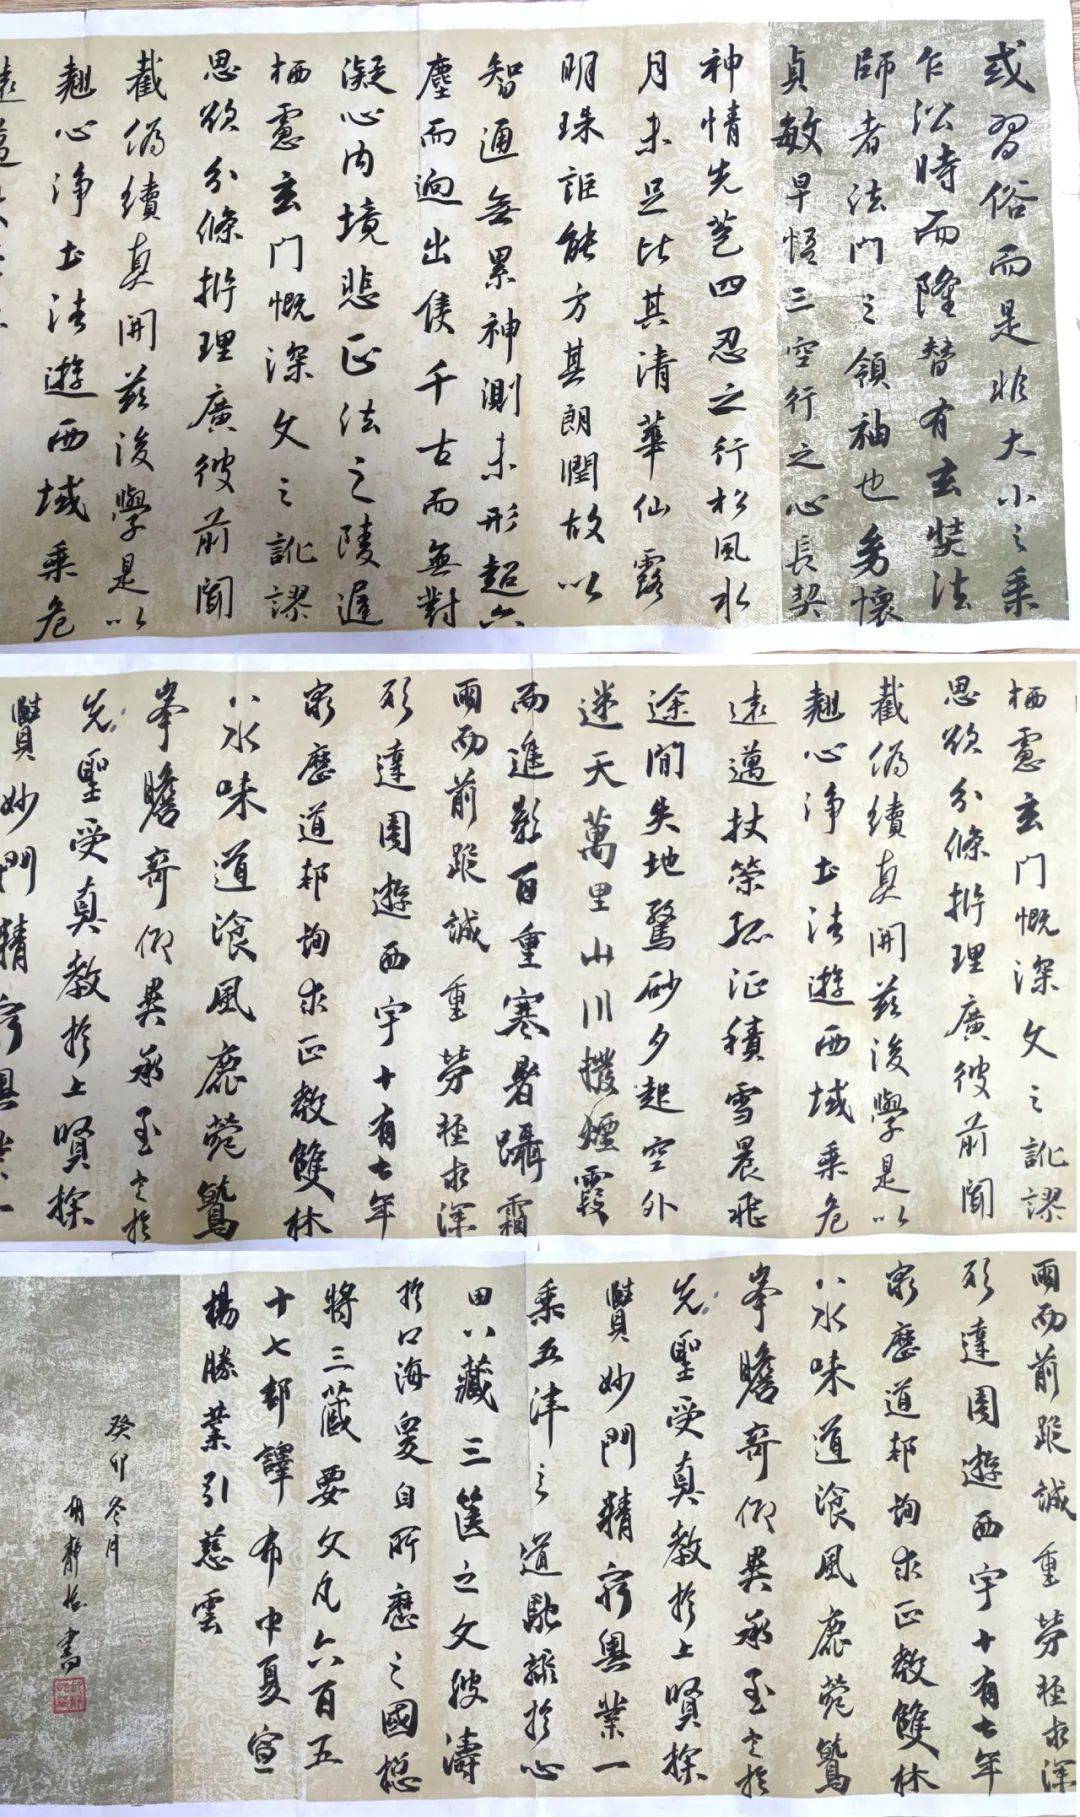 或習俗而是非大小之乘
乍沿時而隆替有玄奘法
師者法門之領袖也幼懷
貞敏早悟三空行之心長契
神情先苞四忍之行松風水
月未足比其清華仙露
明珠詎能方其朗潤故以
智通無累神測未形超六
塵而迥出隻千古而無對
凝心內境悲正法之陵遲
栖慮玄門慨深文之訛謬
思欲分條析理廣彼前聞
截偽續真開茲後學是以
翹心淨土法遊西域乘危
遠邁
栖慮玄門慨深文之訛謬
思欲分條析理廣彼前聞
截偽續真開茲後學是以
翹心淨土法遊西域乘危
遠邁杖策孤征積雪晨飛
途間失地驚砂夕起空外
迷天萬里山川撥煙霞
而進影百重寒暑躡霜
雨而前蹤誠重勞輕求深
願達周遊西宇十有七年
窮歷道邦詢求正教雙林
八水味道飡風鹿菀鷲
峯瞻奇仰異承至言於
先聖受真教於上賢探
賾妙門精窮奧業一
雨而前蹤誠重勞輕求深
願達周遊西宇十有七年
窮歷道邦詢求正教雙林
八水味道飡風鹿菀鷲
峯瞻奇仰異承至言於
先聖受真教於上賢探
賾妙門精窮奧業一
乘五津之道馳驟於心
田八藏三篋之文波濤
於口海爰自所歷之國揔
將三藏要文凡六百五
十七部譯布中夏宣
楊勝業引慈雲
癸卯冬月
胡靜怡書